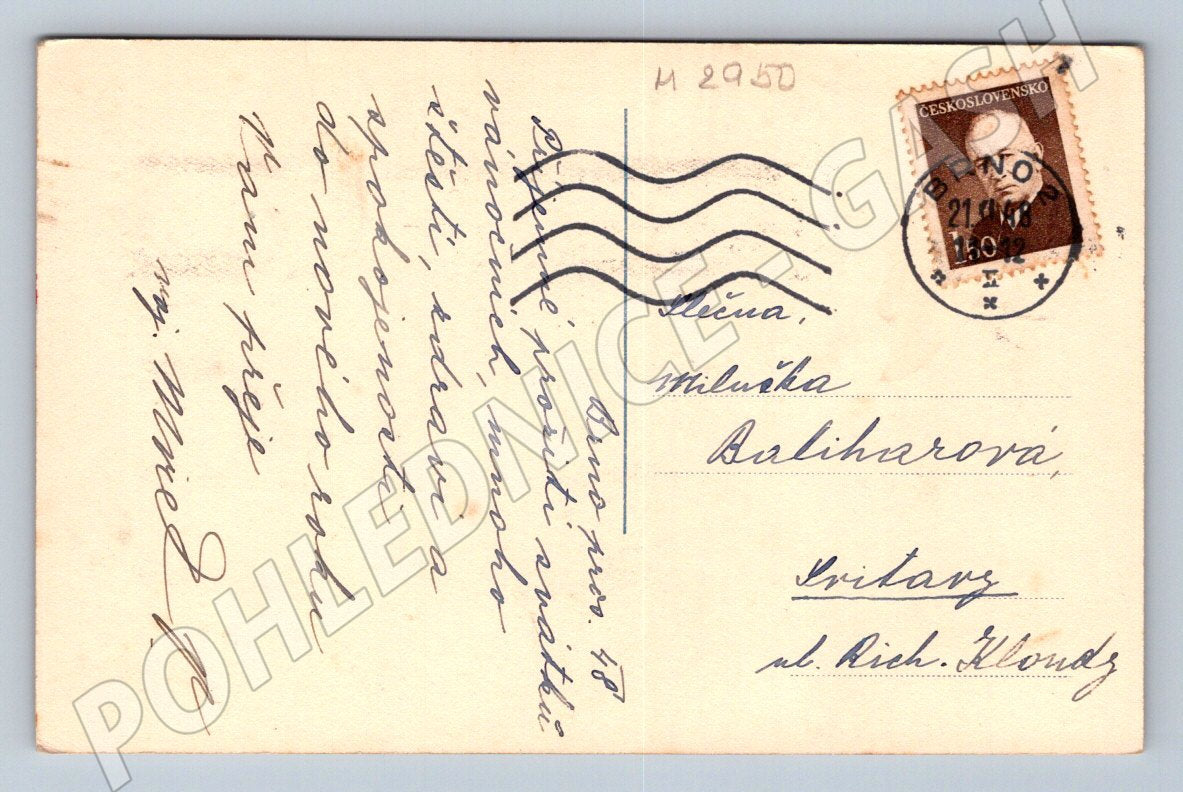 M 2950
ČESKOSLOVENSKO
1.50
BRNO 2
21.XI.48
Brno pros. 48
Příjemné prožití svátků
vánočních, mnoho
štěstí, zdraví a
spokojenosti
do nového roku
Vám přeje
Slečna,
Miluška
Baliharová,
Svitavy
ul. Rich. Kloudy
POHLEDNICE - GASH